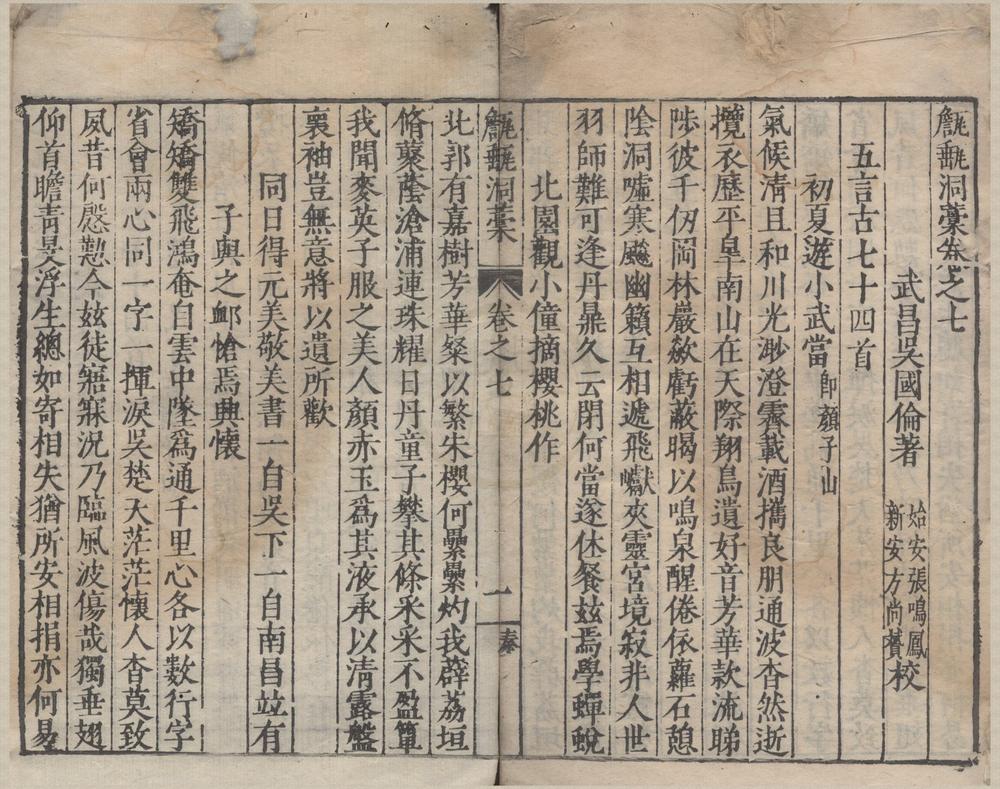 甔甀洞藁卷之七
武昌吳國倫著 始安張鳴鳳 新安方尚贇校
五言古七十四首
初夏遊小武當 即顏子山
氣候淸且和川光渺澄霽載酒攜良朋通波杳然逝
攬衣歷平皐南山在天際翔鳥遺好音芳華款流睇
陟彼千仞岡林巖欻虧蔽暍以鳴泉醒倦依蘿石憩
陰洞噓寒飈幽籟互相遞飛巘夾靈宮境寂非人世
羽師難可逢丹鼎久云閉何當遂休餐玆焉學蟬蛻
北園觀小僮摘櫻桃作
甔甀洞藁 卷之七 一 秦
北郭有嘉樹芳華粲以繁朱櫻何纍纍灼我薜荔垣
脩蘽蔭滄浦連珠耀日丹童子攀其條采采不盈簞
我聞麥英子服之美人顏赤玉爲其液承以淸露盤
褭袖豈無意將以遺所歡
同日得元美敬美書一自吳下一自南昌竝有
子與之䘏愴焉興懷
矯矯雙飛鴻奄自雲中墜爲通千里心各以數行字
省會兩心同一字一揮淚吳楚天茫茫懷人杳莫致
夙昔何慇懃今玆徒寤寐況乃臨風波傷哉獨垂翅
仰首瞻靑旻浮生總如寄相失猶所安相捐亦何易